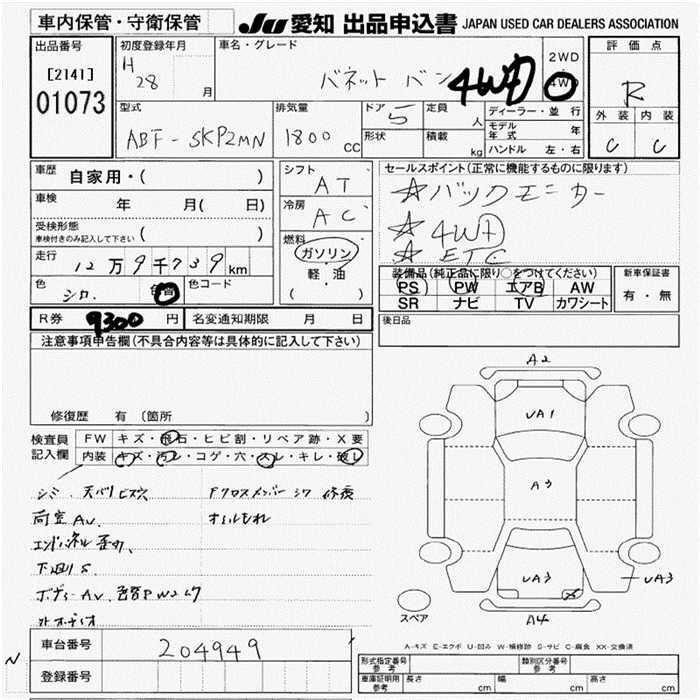 車内保管・守衛保管
JU 愛知 出品申込書 JAPAN USED CAR DEALERS ASSOCIATION
出品番号
[2141]
01073
初度登録年月
H 28 月
車名・グレード
バネット バン 4WD
2WD
4WD
評価点
R
外装 内装
C C
型式
ABF-SKP2MN
排気量
1800 CC
ドア 5
形状
定員 人
積載 kg
ディーラー・並行
モデル年式 年
ハンドル 左・右
車歴 自家用・( )
車検 年 月( 日)
受検形態
車検付きのみ記入して下さい ( )
走行 12万9千739km
色 シロ 色替
色コード
シフト AT
冷房 AC
燃料
ガソリン
軽・油
( )
セールスポイント(正常に機能するものに限ります)
☆バックモニター
☆4WD
☆ETC
装備品(純正品に限り○をつけてください)
PS PW エアB AW
SR ナビ TV カワシート
新車保証書
有・無
R券 9300 円
名変通知期限 月 日
後日品
注意事項申告欄(不具合内容等は具体的に記入して下さい)
修復歴 有 (箇所
検査員記入欄
FW キズ・飛石・ヒビ割・リペア跡・X要
内装 キズ・汚レ・コゲ・穴・スレ・キレ・破レ
シミ、天バリビス穴
荷室AV.
エンドパネル歪み、
下廻りS
Fクロスメンバーシワ 修復
オイルもれ
A2
UA1
A3
UA3
UA3
A4
スペア
A-キズ E-エクボ U-凹み W-補修跡 S-サビ C-腐食 XX-交換済
車台番号 204949
登録番号
N
型式指定番号 参考
類別区分番号 参考
車庫証明用 参考 長さ cm 幅 cm 高さ cm